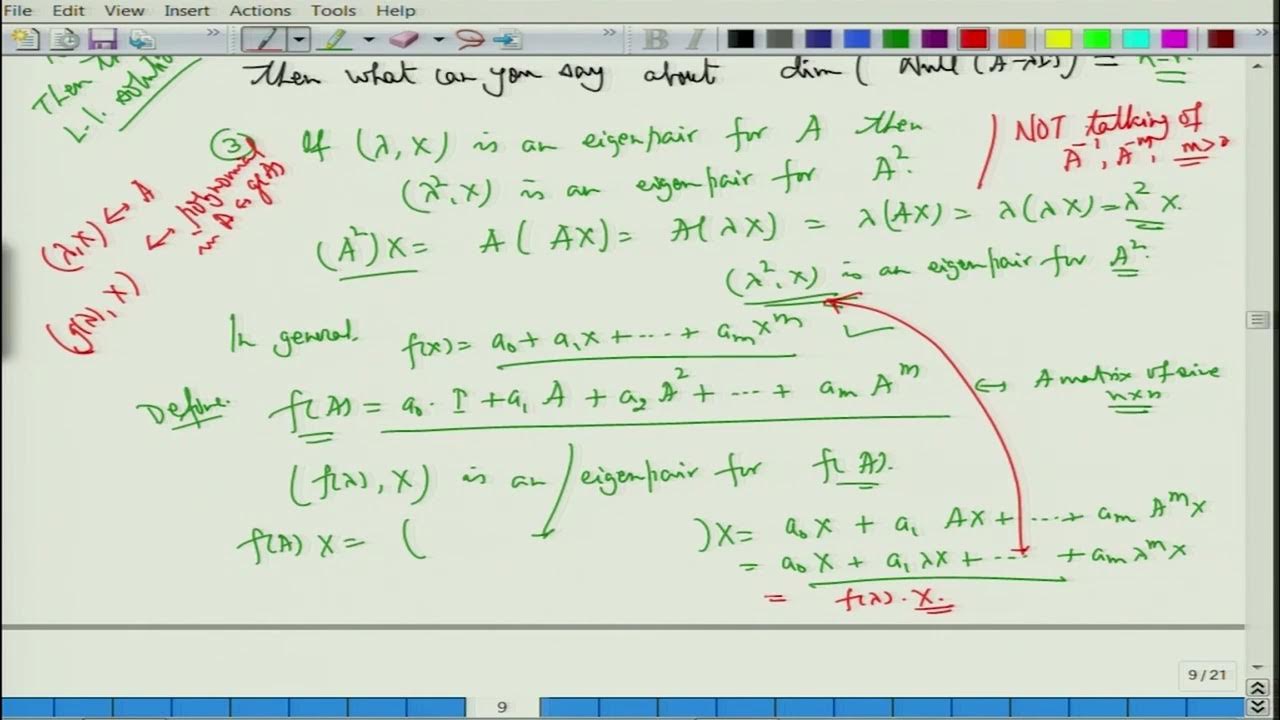 File Edit View Insert Actions Tools Help
Then
L.I. solution
then what can you say about dim( Null (A-λI)) = n-r.
③ If (λ, X) is an eigenpair for A then
(λ², X) is an eigenpair for A².
NOT talking of
A⁻¹, A⁻ᵐ, m>0
(λ, X) ↔ A
(g(λ), X) ↔ polynomial
in A as g(A)
(A²)X = A(AX) = A(λX) = λ(AX) = λ(λX) = λ²X.
(λ², X) is an eigenpair for A².
In general. f(x) = a₀ + a₁x + ---- + aₘxᵐ
Define. f(A) = a₀·I + a₁A + a₂A² + --- + aₘAᵐ ↔ A matrix of size
n×n
(f(λ), X) is an eigenpair for f(A).
f(A) X = ( )X = a₀X + a₁AX + ---- + aₘAᵐX
= a₀X + a₁λX + --- + aₘλᵐX
= f(λ)·X.
9 / 21
9